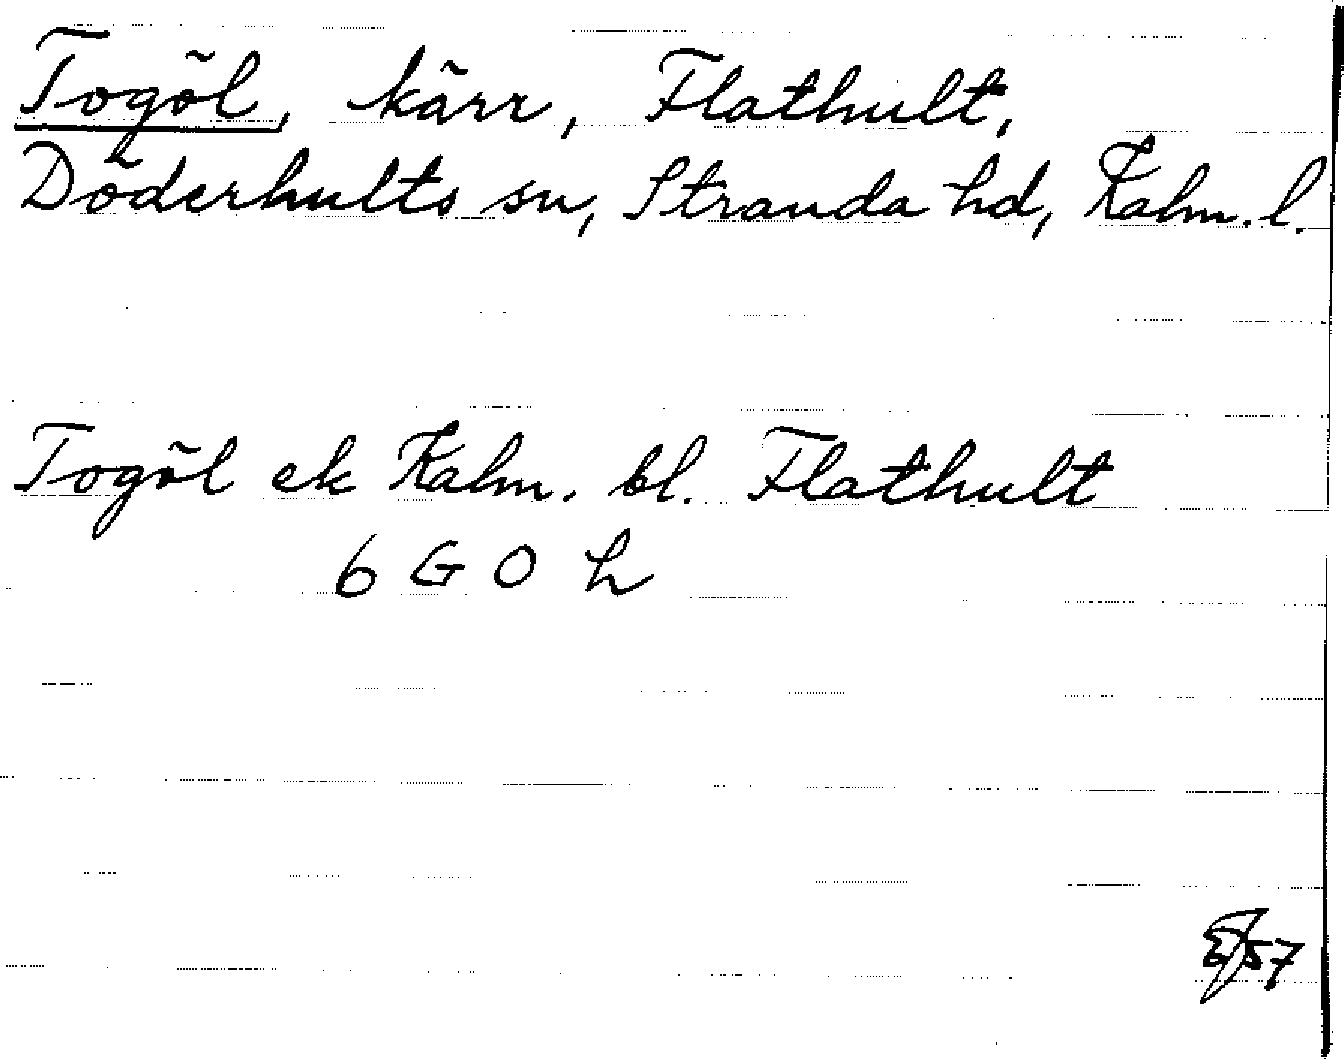 Togöl, kärr, Flathult,
Döderhults sn, Stranda hd, Kalm. l.
Togöl ek Kalm. bl. Flathult
6 G O h
57